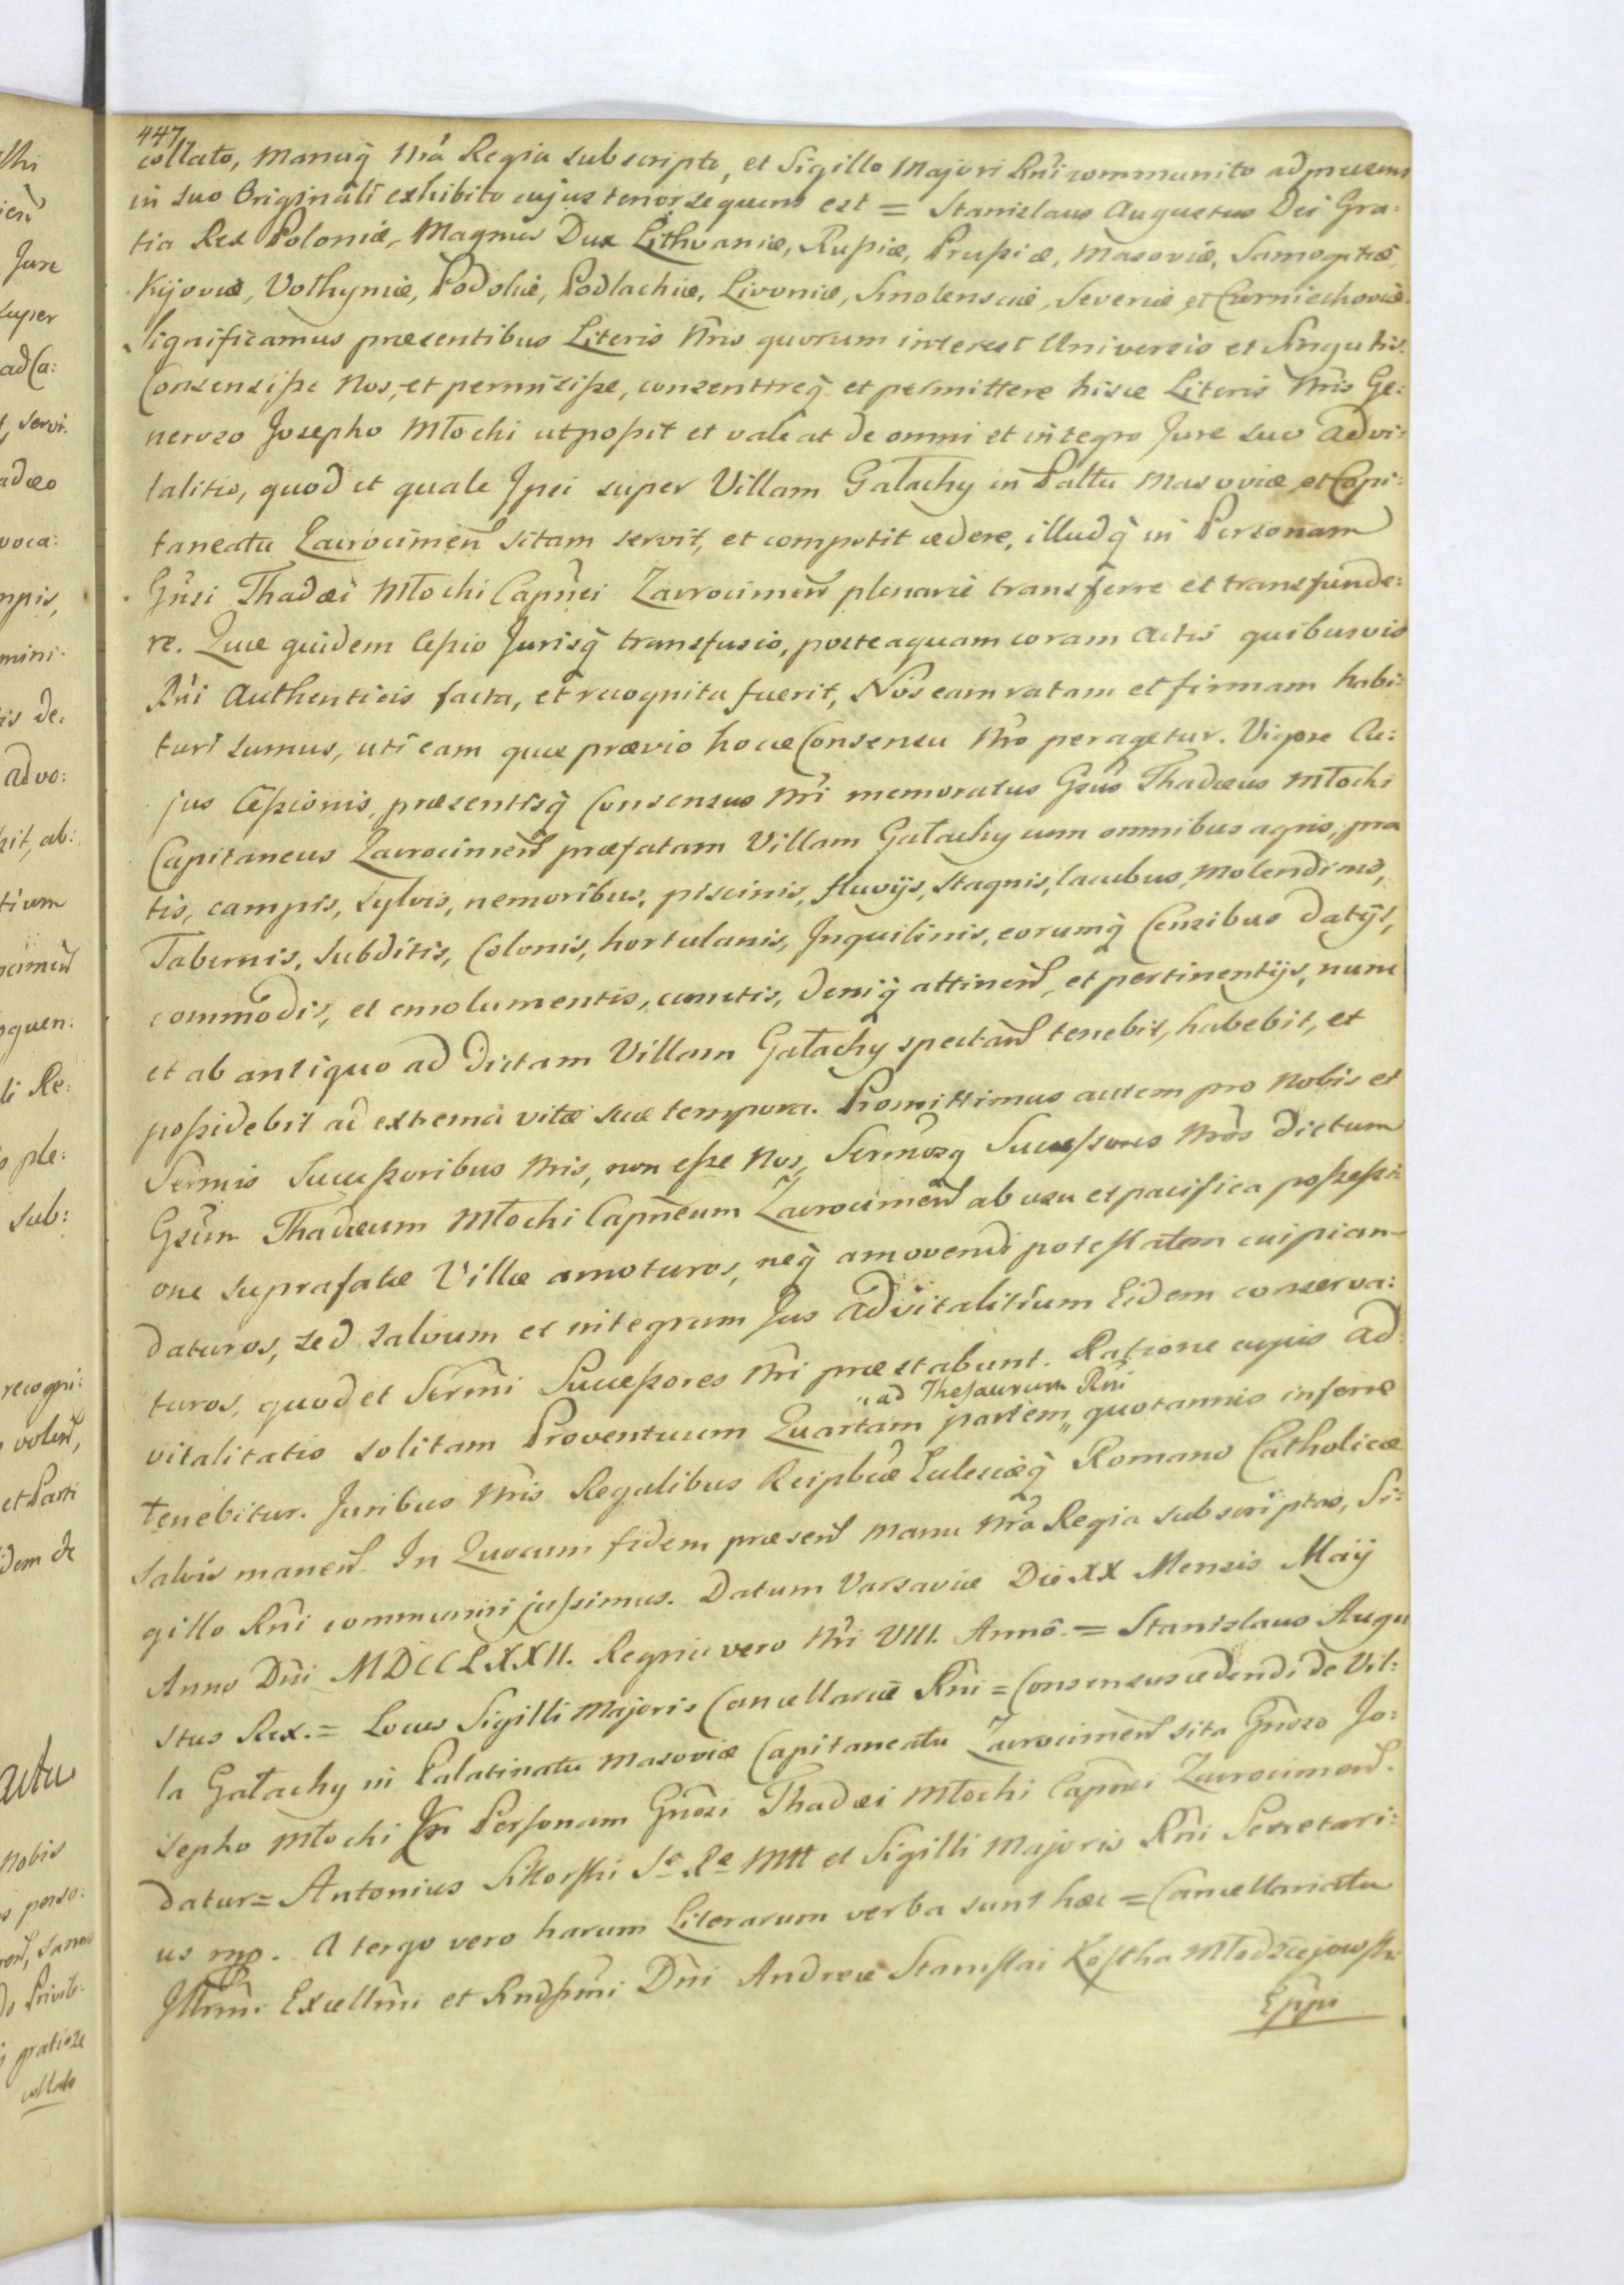 447
collato, Manuq̃ Nr̃a Regia subscripto, et Sigillo Majori Rñi communito ad præsens
in suo Originali exhibito cujus tenor sequens est = Stanislaus Augustus Dei Gra:
tia Rex Poloniæ, Magnus Dux Lithvaniæ, Rußiæ, Prußiæ, Masoviæ, Samogitiæ,
Kijoviæ, Volhyniæ, Podoliæ, Podlachiæ, Livoniæ, Smolensciæ, Severiæ et Czerniechoviæ.
Significamus præsentibus Literis Nr̃is quorum interest Universis et Singulis.
Consensiße Nos, et permisiße, consentireq̃ et permittere hisce Literis Nr̃is Ge:
neroso Josepho Młocki ut poßit et valeat de omni et integro Jure suo advi:
talitio, quod et quale Ipsi super Villam Gałachy in Palttu Masoviæ et Capi:
taneatu Zacrocimeñ sitam servit, et competit cedere, illudq̃ in Personam
Gñsi Thadæi Młocki Capñei Zacrocimeñ plenarie transferre et transfunde:
re. Quæ quidem Ceßio Jurisq̃ transfusio, posteaquam coram Actis quibusvis
Rñi Authenticis facta, et recognita fuerit, Nos eam ratam et firmam habi:
turi sumus, uti eam quæ prævio hocce Consensu Nr̃o peragetur. Vigore Cu:
jus Ceßionis, præsentisq̃ Consensus Nr̃i memoratus Gsũs Thadæus Młocki
Capitaneus Zacrocimeñ præfatam Villam Gałachy cum omnibus agris, pra
tis, campis, sylvis, nemoribus, piscinis, fluvijs, stagnis, lacubus, molendinis,
Tabernis, subditis, Colonis, hortulanis, Inquilinis, eorumq̃ Censibus datijs,
commodis, et emolumentis, cunctis, deniq̃ attineñ, et pertinentijs, nunc
et ab antiquo ad dictam Villam Gałachy spectañ tenebit, habebit, et
poßidebit ad extrema vitæ suæ tempora. Promittimus autem pro Nobis et
Serm̃is Succeßoribus Nr̃is, non eße Nos, Serm̃osq̃ Succeßores Nr̃os dictum
Gsũm Thadæum Młocki Capñeum Zacrocimeñ ab usu et pacifica poßeßi:
one suprafatæ Villæ amoturos, neq̃ amovendi potestatem cuipiam
daturos, sed salvum et integrum Jus advitalitium Eidem conserva:
turos, quod et Serm̃i Succeßores Nr̃i præstabunt. Ratione cujus ad
vitalitatis solitam Proventuum Quartam partem „ad Thesaurum Rñi„ quotannis inferre
tenebitur. Juribus Nr̃is Regalibus Reipb̃cæ Ecclesiæq̃ Romano Catholicæ
salvis maneñ. In Quorum fidem præseñ manu Nr̃a Regia subscriptas, Si:
gillo Rñi communiri jußimus. Datum Varsaviæ Die XX Mensis Maij
Anno Dñi MDCCLXXII. Regni vero Nr̃i VIII. Anno. = Stanislaus Augu
stus Rex. = Locus Sigilli Majoris Cancellariæ Rñi = Consensus cedendi de Vil:
la Gałachy in Palatinatu Masoviæ Capitaneatu Zacrocimeñ sita Gñoso Jo:
sepho Młocki In Personam Gñosi Thadæi Młocki Capñei Zacrocimeñ.
datur = Antonius Sikorski Sæ Ræ Mtt et Sigilli Majoris Rñi Secretari:
us mp. A tergo vero harum Literarum verba sunt hæc = Cancellariatu
Illrm̃i Excellm̃i et Rndßm̃i Dñi Andreæ Stanislai Kostka Młodziejowski
Epp̃i